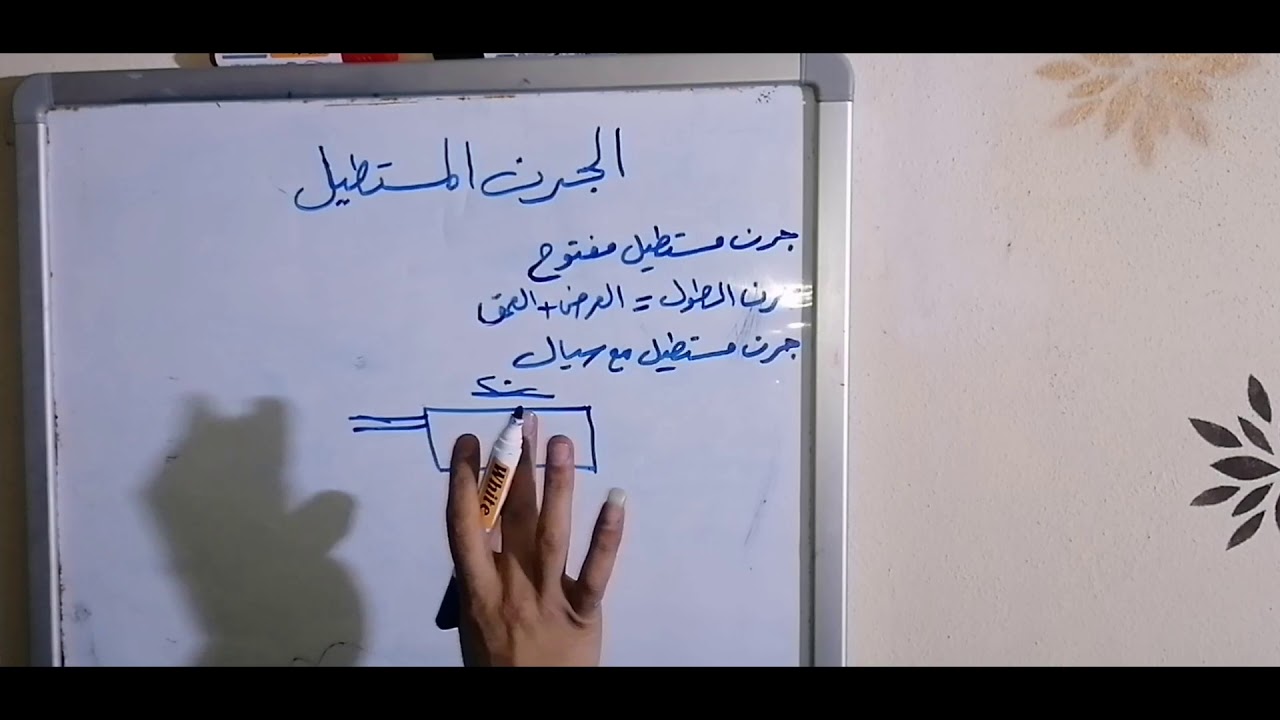 الجرن المستطيل
جرن مستطيل مفتوح
جرن الطول = العرض + العمق
جرن مستطيل مع سيال
White